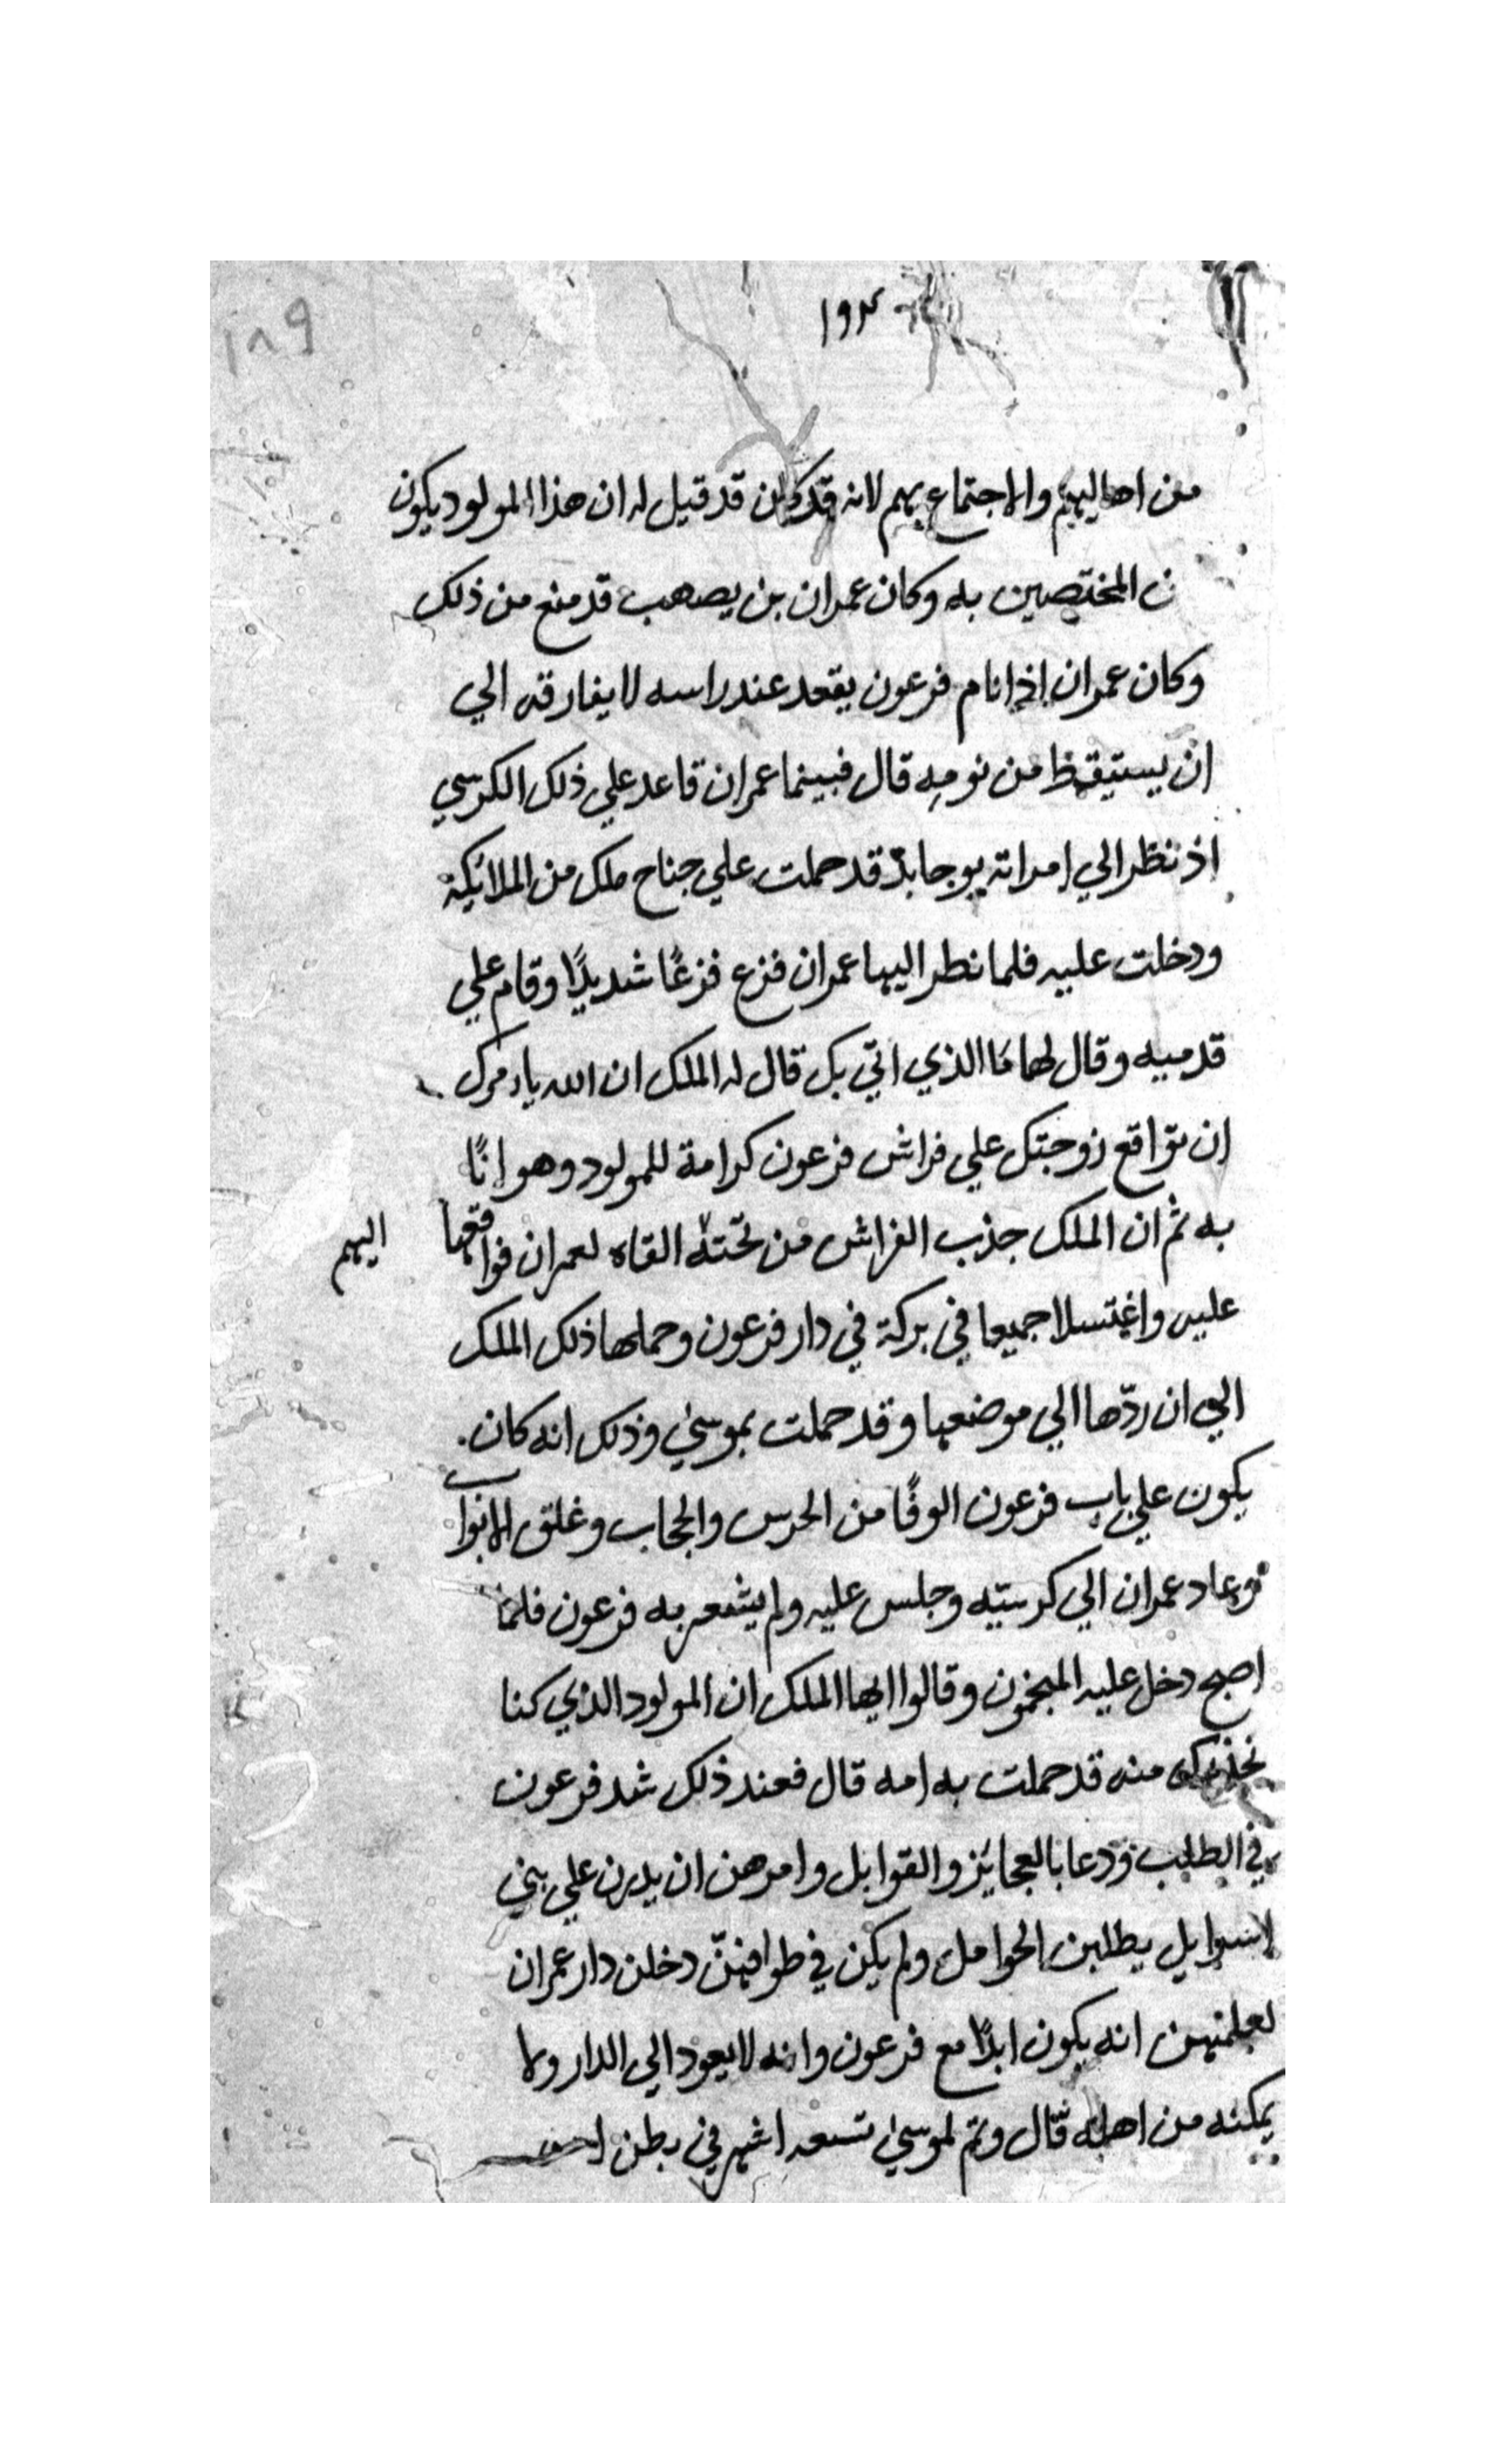 ١٨٩
١٩٢
من اهاليهم والاجتماع بهم لانه قد كان قد قيل له ان هذا المولود يكون
ن المختصين به وكان عمران بن يصهب قد منع من ذلك
وكان عمران اذا نام فرعون يقعد عند راسه لا يفارقه الي
ان يستيقظ من نومه قال فبينما عمران قاعد علي ذلك الكرسي
اذ نظر الي امراته يوجابد قد حملت علي جناح ملك من الملائكة
ودخلت عليه فلما نطر اليها عمران فزع فزعًا شديدًا وقام علي
قدميه وقال لها ما الذي اتي بك قال له الملك ان الله يامرك
ان تواقع زوجتك علي فراش فرعون كرامة للمولود وهوانًا
به ثم ان الملك جذب الفراش من تحته القاه لعمران فواقعها
اليهم
عليه واغتسلا جميعا في بركة في دار فرعون وحملها ذلك الملك
الي ان ردّها الي موضعها وقد حملت بموسي وذلك انه كان
يكون علي باب فرعون الوفًا من الحرس والحجاب وغلق الابواب
وعاد عمران الي كرسيه وجلس عليه ولم يشعر به فرعون فلما
اصبح دخل عليه المنجمون وقالوا ايها الملك ان المولود الذي كنا
نحذرك منه قد حملت به امه قال فعند ذلك شد فرعون
في الطلب ودعا بالعجايز والقوابل وامرهن ان يدرن علي بني
اسرايل يطلبن الحوامل ولم يكن في طوافهنّ دخلن دار عمران
لعلمهن انه يكون ابدًا مع فرعون وانه لا يعود الي الدار ولا
يمكنه من اهله قال وتم لموسي تسعه اشهر في بطن